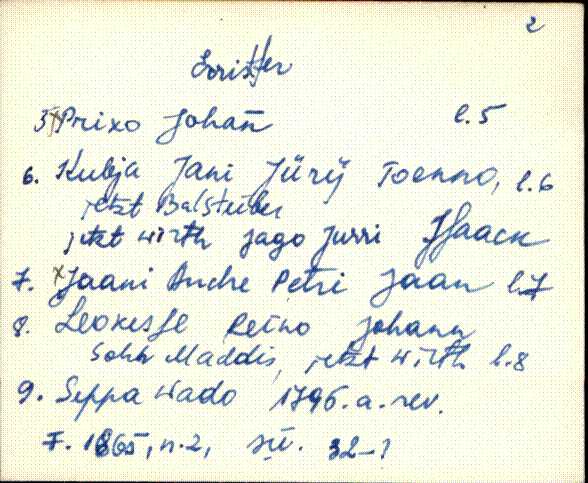 2
Sorisfer
5 x Prixo Johan̄ l.5
6. Kubja Jani Jürÿ Toenno, l.6
jetzt Balstüber
jetzt wirth Jago Jurri Isaack
7. x Jaani Andre Petri Jaan l.7
8. Leokesse Reino Johann
Sohn Maddis, jetzt wirth l.8
9. Seppa Wado 1796. a. rev.
F. 1865, n.2, sü. 32-